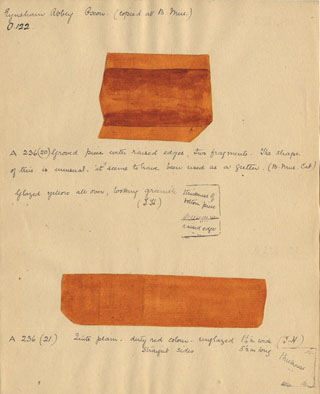 Eynsham Abbey Oxon. (copied at B. Mus.)
O.122
A 236 (20) Grooved piece with raised edges. Two fragments. The shape
of this is unusual. "it" seems to have been used as a gutter. (B. Mus. Cat)
Glazed yellow all over, looking greenish
(J.H)
thickness of
bottom piece
raised edge
A 236 (21) Quite plain. dirty red colour. unglazed 1½ in wide (J.H)
Straight sides 5¾ in long
thickness